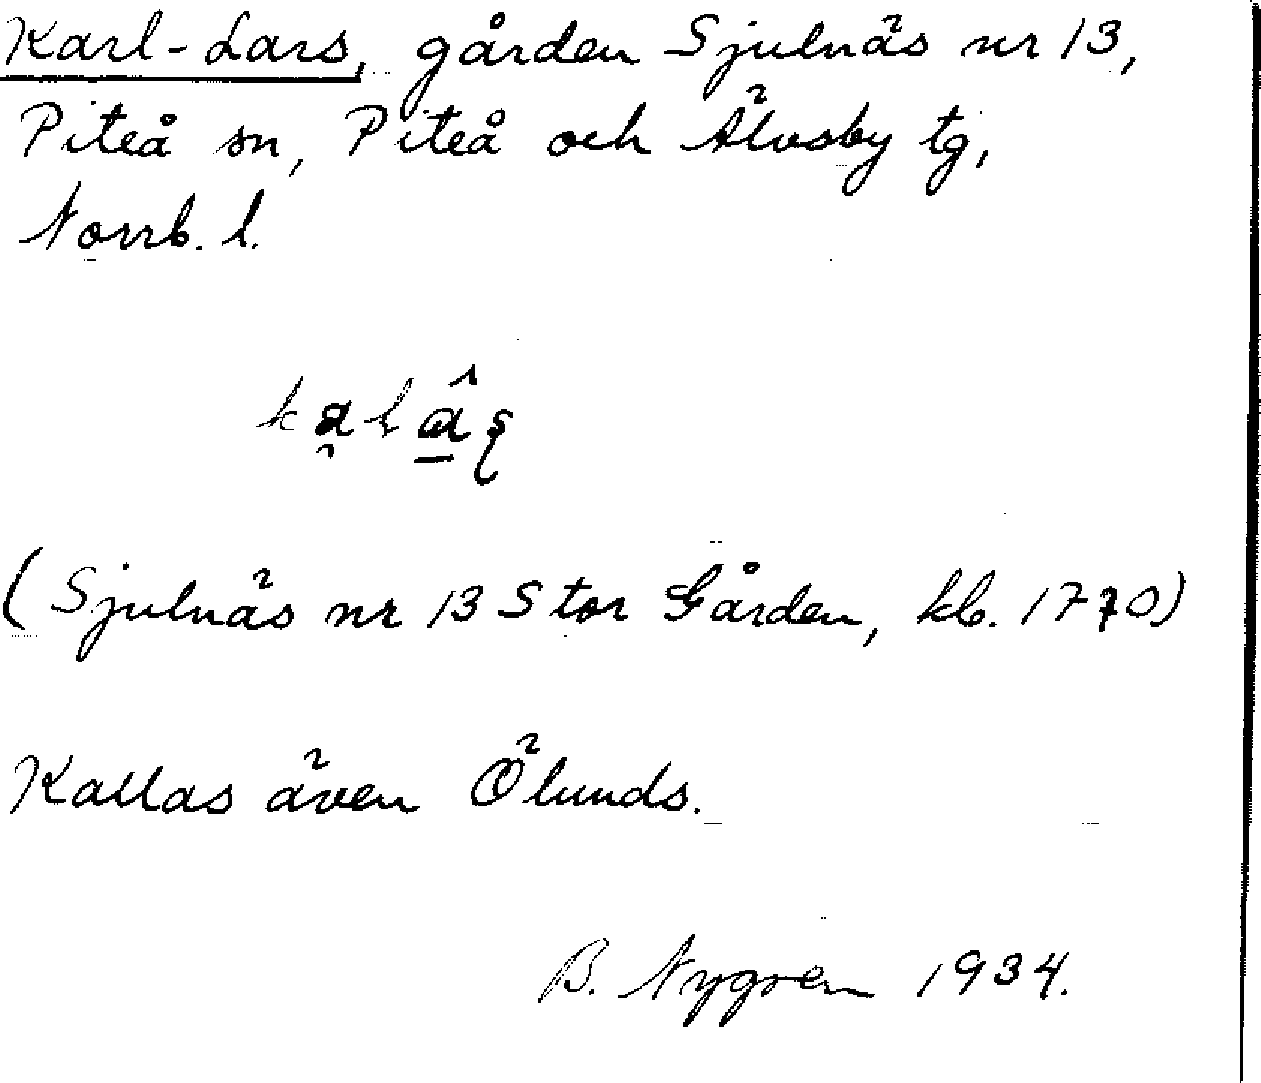 Karl-Lars, gården Sjulnäs nr 13,
Piteå sn, Piteå och Älvsby tg,
Norrb. l.
(Sjulnäs nr 13 Stor Gården, kb. 1770)
Kallas även Ölunds.
B. Nygren 1934.